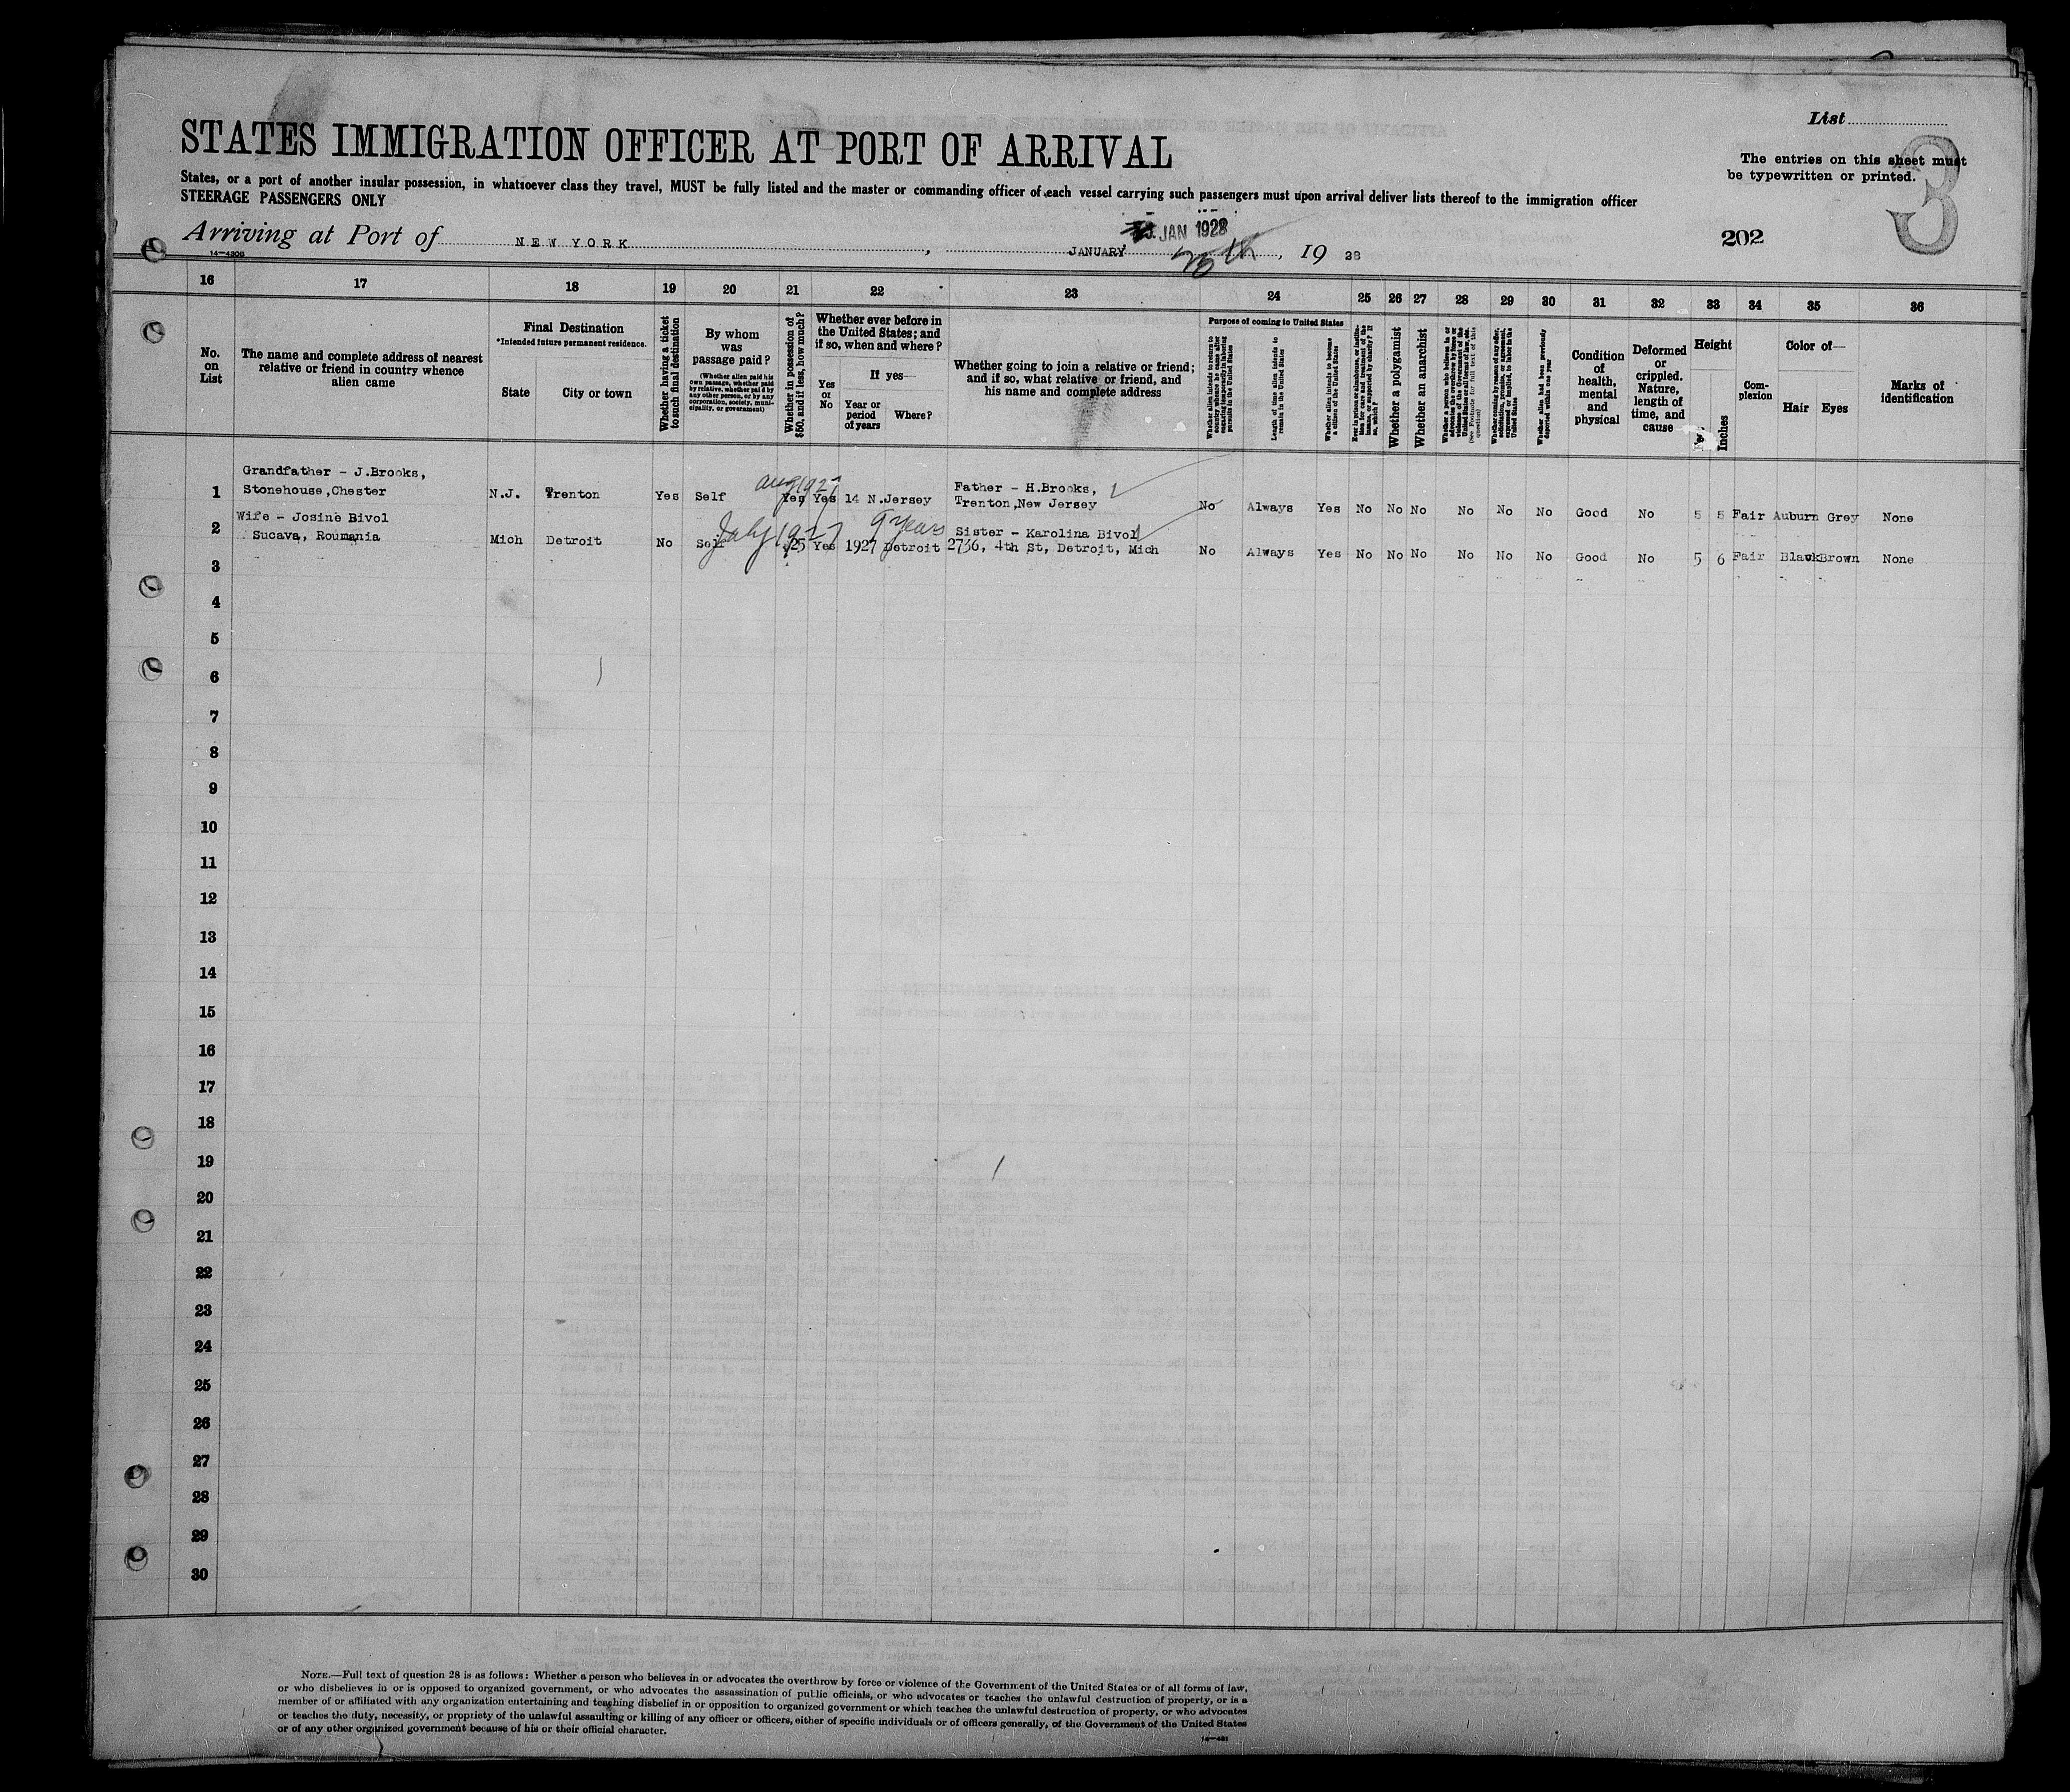 List
STATES IMMIGRATION OFFICER AT PORT OF ARRIVAL
The entries on this sheet must
be typewritten or printed.
3
States, or a port of another insular possession, in whatsoever class they travel, MUST be fully listed and the master or commanding officer of each vessel carrying such passengers must upon arrival deliver lists thereof to the immigration officer
STEERAGE PASSENGERS ONLY
JAN 1928
Arriving at Port of NEW YORK, JANUARY 20th, 19 28
202
14—4200
16 17 18 19 20 21 22 23 24 25 26 27 28 29 30 31 32 33 34 35 36
No. on List
The name and complete address of nearest relative or friend in country whence alien came
Final Destination
*Intended future permanent residence.
State
City or town
Whether having a ticket to such final destination
By whom was passage paid?
(Whether alien paid his own passage, whether paid by relative, whether paid by any other person, or by any corporation, society, municipality, or government)
Whether in possession of $50, and if less, how much?
Whether ever before in the United States; and if so, when and where?
Yes or No
If yes—
Year or period of years
Where?
Whether going to join a relative or friend; and if so, what relative or friend, and his name and complete address
Purpose of coming to United States
Length of time alien intends to remain in the United States
Whether alien intends to become a citizen of the United States
Whether a polygamist
Whether an anarchist
Whether alien had been previously deported within one year
Condition of health, mental and physical
Deformed or crippled. Nature, length of time, and cause
Height
Feet
Inches
Complexion
Color of—
Hair
Eyes
Marks of identification
Grandfather - J.Brooks,
1 Stonehouse,Chester N.J. Trenton Yes Self Yes Yes 14 N.Jersey Father - H.Brooks,
Trenton,New Jersey No Always Yes No No No No No No Good No 5 5 Fair Auburn Grey None
Aug 1927
Wife - Josine Bivol
2 Sucava, Roumania Mich Detroit No Self 25 Yes 1927 Detroit Sister - Karolina Bivol
2736, 4th St, Detroit, Mich No Always Yes No No No No No No Good No 5 6 Fair Black Brown None
July 1927 9 years
3
4
5
6
7
8
9
10
11
12
13
14
15
16
17
18
19
20
21
22
23
24
25
26
27
28
29
30
NOTE.—Full text of question 28 is as follows: Whether a person who believes in or advocates the overthrow by force or violence of the Government of the United States or of all forms of law,
or who disbelieves in or is opposed to organized government, or who advocates the assassination of public officials, or who advocates or teaches the unlawful destruction of property, or is a
member of or affiliated with any organization entertaining and teaching disbelief in or opposition to organized government or which teaches the unlawful destruction of property, or who advocates
or teaches the duty, necessity, or propriety of the unlawful assaulting or killing of any officer or officers, either of specific individuals or of officers generally, of the Government of the United States
or of any other organized government because of his or their official character.